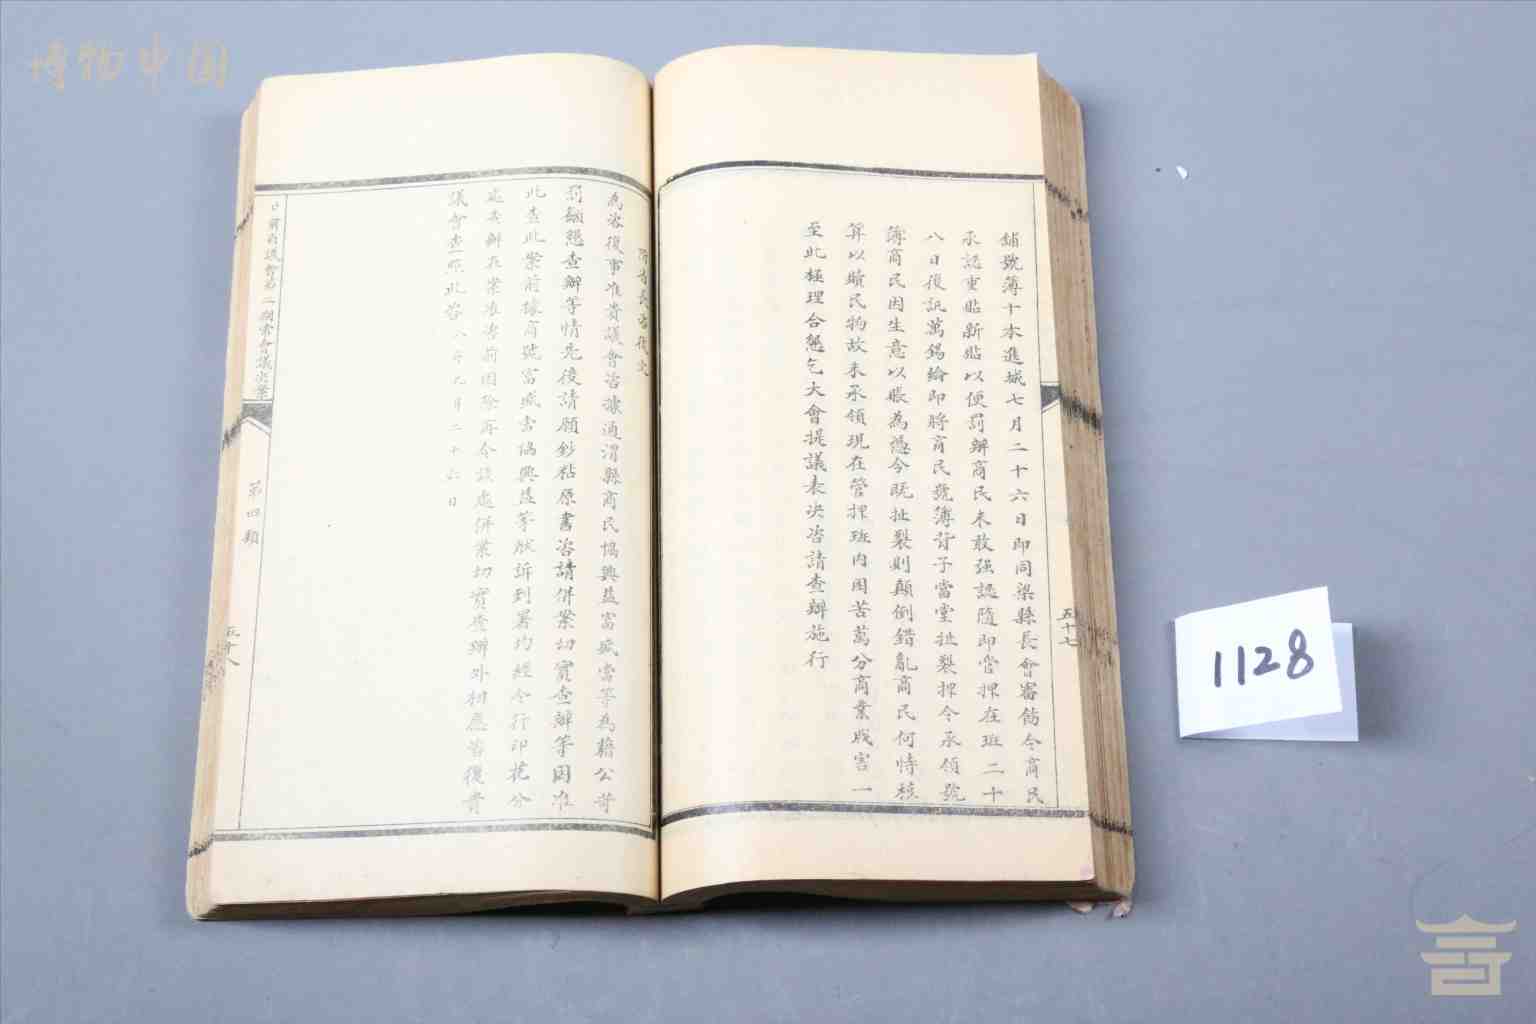 博物中国
舖號簿十本進城七月二十六日即同梁縣長會審飭令商民
承認更貼新貼以便罰辦商民未敢强認隨即管押在班二十
八日復訊萬錫綸即將商民號簿背子當堂扯裂押令承領號
簿商民因生意以賬為憑今既扯裂則顛倒錯亂商民何恃核
算以贖民物故未承領現在管押班内困苦萬分商業戕害一
至此極理合懇乞大會提議表决咨請查辦施行
五十七
長咨復文
為咨復事准貴議會咨據通渭縣商民協興益富成當等為藉公苛
罰籲懇查辦等情先後請願鈔粘原書咨請併案切實查辦等因准
此查此案前據商號富成當協興益等狀訴到署均經令行印花分
處查辦在案准咨前因除再令該處併案切實查辦外相應咨復貴
議會查照此咨八年九月二十六日
議會第二期常會議决案
第四類
五十八
1128